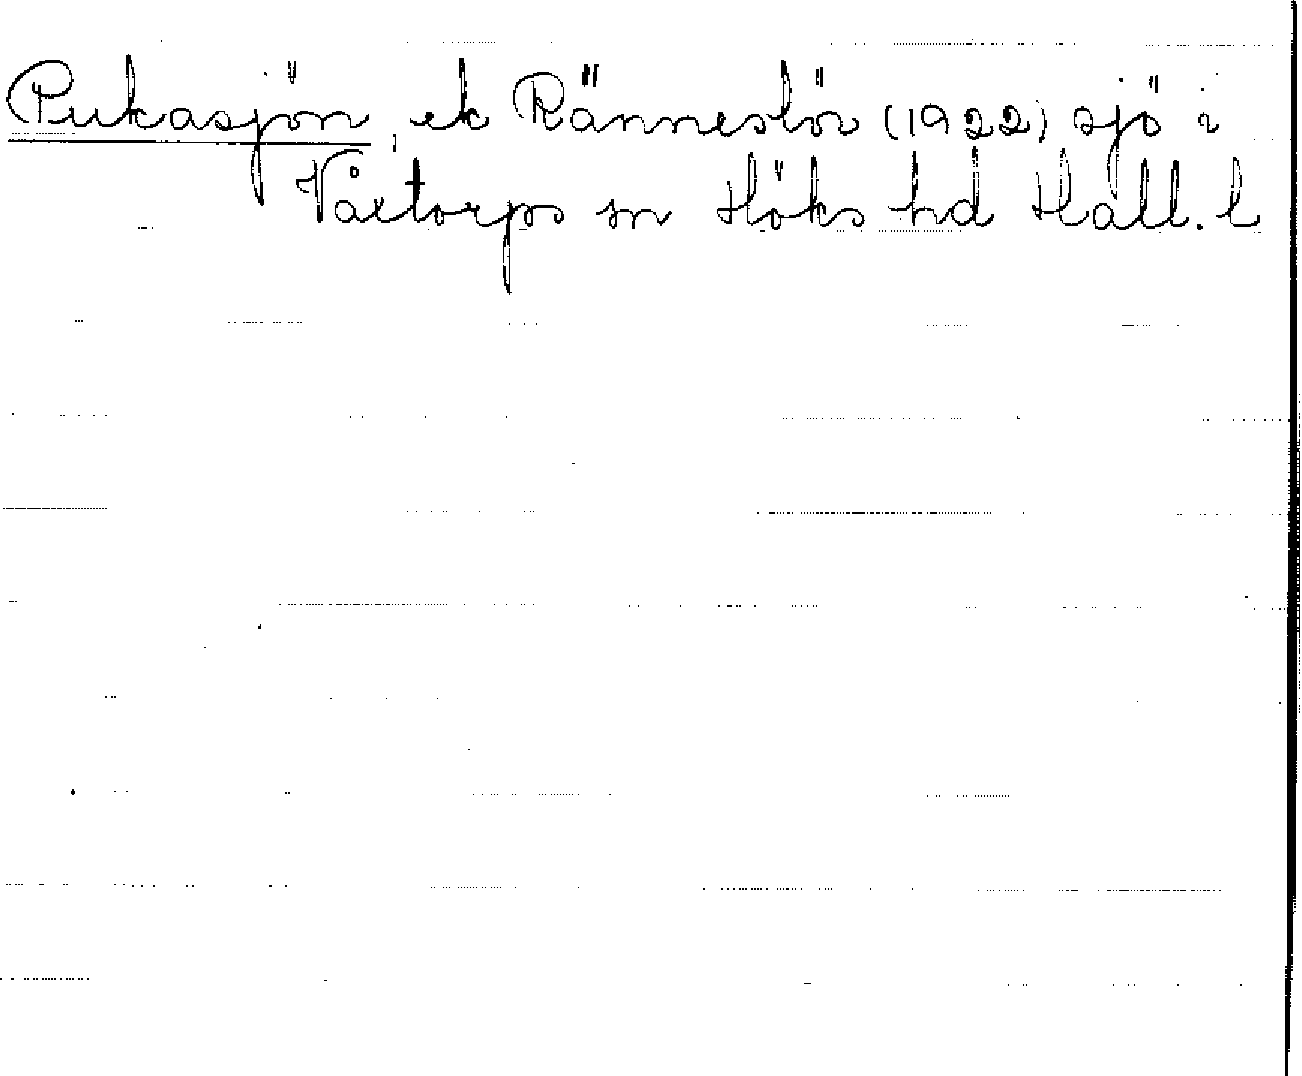 Pukasjön, ek Ränneslöv (1922) sjö i
Våxtorps sn Höks hd Hall. l